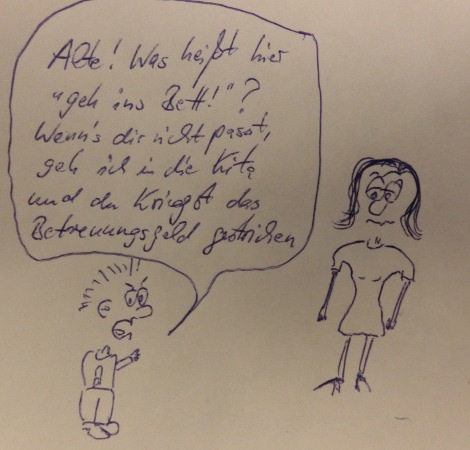 Alte! Was heißt hier
"geh ins Bett!"?
Wenn's dir nicht passt,
geh ich in die Kita
und du kriegst das
Betreuungsgeld gestrichen